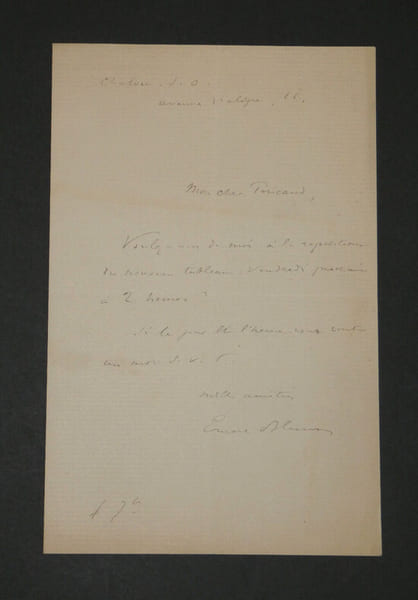 Chatou. S. O.
avenue d'aligre, 16.
Mon cher
Voulez-vous de moi à la répétition
du nouveau tableau, Vendredi prochain
à 2 heures ?
Si le jour et l'heure vous vont
un mot S. V. P.
mille amitiés
Ernest Blum